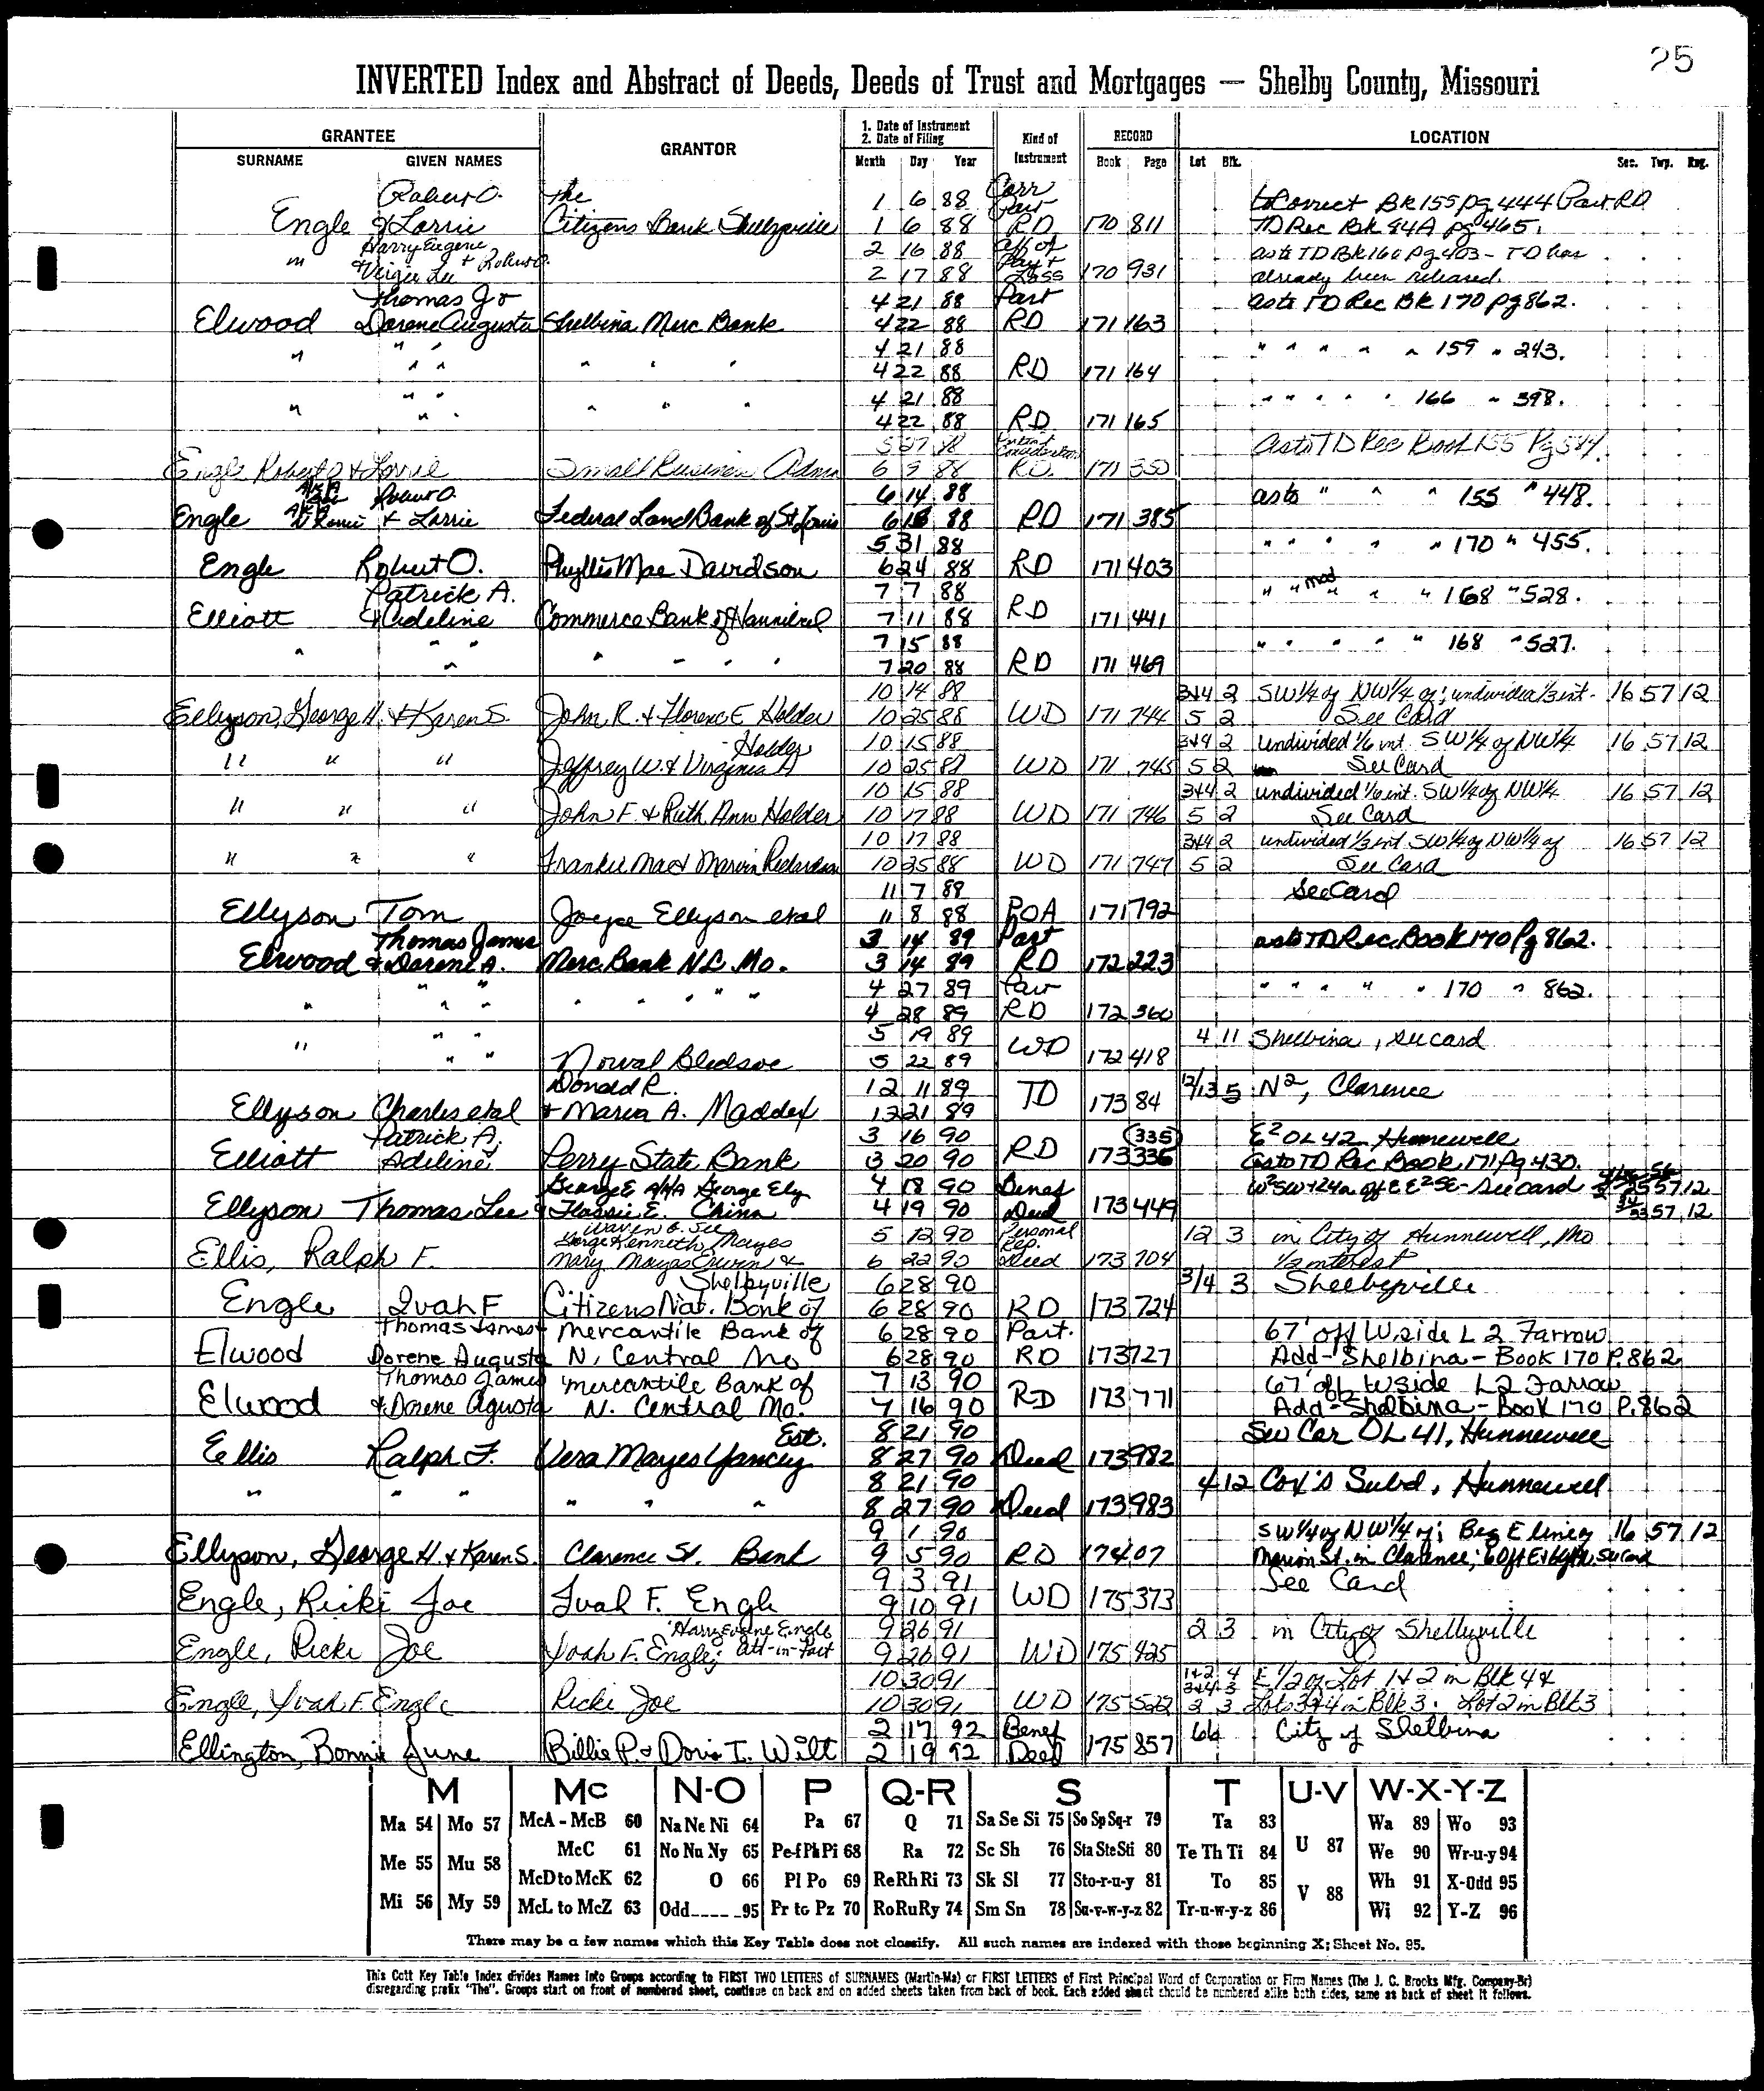 25
INVERTED Index and Abstract of Deeds, Deeds of Trust and Mortgages — Shelby County, Missouri
GRANTEE GRANTOR 1. Date of Instrument 2. Date of Filing Kind of Instrument RECORD LOCATION
SURNAME GIVEN NAMES Month Day Year Book Page Lot Blk. Sec. Twp. Rng.
Robert O. The 1 6 88 Corr Part to Correct Bk 155 pg 444 Part RD
Engle & Lorrie Citizens Bank Shelbyville 1 6 88 RD 170 811 TD Rec Bk 84A pg 465.
" Harry Eugene 2 16 88 Aff of as to TD Bk 160 pg 403 - TD has
& Virgie Lee & Robert O. 2 17 88 Loss 170 931 already been released.
Thomas J & 4 21 88 Part as to TD Rec Bk 170 pg 862.
Elwood Dorene Augusta Shelbina Merc Bank 4 22 88 RD 171 163
" " " 4 21 88 " " " " " 159 " 243.
" " " " " 4 22 88 RD 171 164
" " " 4 21 88 " " " " " 166 " 398.
" " " " " 4 22 88 RD 171 165
5 27 88 as to TD Rec Book 155 Pg 544.
Engle Robert O & Lorrie Small Business Adm 6 3 88 RD. 171 350
AKA Robert O. 6 14 88 as to " " " 155 " 448.
Engle & Lorrie Federal Land Bank of St Louis 6 88 RD 171 385
5 31 88 " " " " " 170 " 455.
Engle Robert O. Phyllis Mae Davidson 6 24 88 RD 171 403
Patrick A. 7 7 88 " " mod " " " 168 " 528.
Elliott & Adeline Commerce Bank of Hannibal 7 11 88 RD 171 441
" " " 7 15 88 " " " " " 168 " 527.
" " " " " 7 20 88 RD 171 469
10 14 88 3+4 2 SW 1/4 of NW 1/4 of; undivided 1/3 int. 16 57 12
Ellyson, George H. & Karen S. John R. & Florence E Holder 10 25 88 WD 171 744 5 2 See Card
Holder 10 15 88 3+4 2 undivided 1/6 int. SW 1/4 of NW 1/4 16 57 12
" " " Jeffrey W. & Virginia A 10 25 88 WD 171 745 5 2 See Card
10 15 88 3+4 2 undivided 1/6 int. SW 1/4 of NW 1/4 16 57 12
" " " John F. & Ruth Ann Holder 10 17 88 WD 171 746 5 2 See Card
10 17 88 3+4 2 undivided 1/3 int SW 1/4 of NW 1/4 of 16 57 12
" " " Frankie Mae & Marvin Richardson 10 25 88 WD 171 747 5 2 See Card
11 7 88 See Card
Ellyson Tom Joyce Ellyson etal 11 8 88 POA 171 792
Thomas James 3 14 89 Part as to TD Rec Book 170 Pg 862.
Elwood & Dorene A. Merc. Bank N.C. Mo. 3 14 89 RD 172 223
" " 4 27 89 Par " " " " " 170 " 862.
" " " " " " " " 4 28 89 RD 172 360
" " " 5 19 89 WD 4 11 Shelbina, see card
" " Norval Bledsoe 5 22 89 172 418
Donald R. 12 11 89 TD 12/13 5 N2, Clarence
Ellyson Charles etal & Maria A. Maddex 12 21 89 173 84
Patrick A. 3 16 90 RD (335) E2 OL 42 Hunnewell
Elliott Adeline Perry State Bank 3 20 90 173 336 as to TD Rec Book 171 Pg 430.
George E A/K/A George Ely 4 18 90 Benef W2SW+24a off E E2SE - See card 57 12
Ellyson Thomas Lee & Flossie E. China 4 19 90 Deed 173 449 57 12
George Kenneth Mayes 5 12 90 Personal Rep. 12 3 in City of Hunnewell, Mo
Ellis, Ralph F. Mary Mayes Erwin & 6 22 90 Deed 173 704 1/3 interest
Shelbyville 6 28 90 3/4 3 Shelbyville
Engle Ivah F Citizens Nat. Bank of 6 28 90 RD 173 724
Thomas James & Mercantile Bank of 6 28 90 Part. 67' off W side L 2 Farrow
Elwood Dorene Augusta N. Central Mo 6 28 90 RD 173 727 Add - Shelbina - Book 170 P. 862
Thomas James Mercantile Bank of 7 13 90 67' off W side L 2 Farrow
Elwood & Dorene Agusta N. Central Mo. 7 16 90 RD 173 771 Add - Shelbina - Book 170 P. 862
Est. 8 21 90 See Car OL 41, Hunnewell
Ellis Ralph F. Vera Mayes Yancey 8 27 90 Deed 173 982
8 21 90 4 12 Cox's Subd, Hunnewell
" " " " " " 8 27 90 Deed 173 983
9 1 90 SW 1/4 of NW 1/4 of; Beg E line of 16 57 12
Ellyson, George H. & Karen S. Clarence St. Bank 9 5 90 RD 174 07 Marion St. in Clarence; 60 ft E See Card
9 3 91 See Card
Engle, Ricki Joe Ivah F. Engle 9 10 91 WD 175 373
Harry Eugene Engle 9 26 91 2 3 in City of Shelbyville
Engle, Ricki Joe Ivah F. Engle; Att-in-Fact 9 26 91 WD 175 425
10 30 91 1+2 4 E 1/2 of Lot 1+2 in Blk 4 &
3+4 3
Engle, Ivah F. Engle Ricki Joe 10 30 91 WD 175 522 2 3 Lots 3+4 in Blk 3. Lot 2 in Blk 3
2 17 92 Benef 66 City of Shelbina
Ellington, Bonnie June Billie P. & Doris I. Wilt 2 19 92 Deed 175 857
M Mc N-O P Q-R S T U-V W-X-Y-Z
Ma 54 Mo 57 McA - McB 60 Na Ne Ni 64 Pa 67 Q 71 Sa Se Si 75 So Sp Sq-r 79 Ta 83 U 87 Wa 89 Wo 93
Me 55 Mu 58 McC 61 No Nu Ny 65 Pe-f Ph Pi 68 Ra 72 Sc Sh 76 Sta Ste Sti 80 Te Th Ti 84 We 90 Wr-u-y 94
McD to McK 62 O 66 Pl Po 69 Re Rh Ri 73 Sk Sl 77 Sto-r-u-y 81 To 85 V 88 Wh 91 X-Odd 95
Mi 56 My 59 McL to McZ 63 Odd____95 Pr to Pz 70 Ro Ru Ry 74 Sm Sn 78 Su-v-w-y-z 82 Tr-u-w-y-z 86 Wi 92 Y-Z 96
There may be a few names which this Key Table does not classify. All such names are indexed with those beginning X; Sheet No. 95.
This Cott Key Table Index divides Names into Groups according to FIRST TWO LETTERS of SURNAMES (Martin-Ma) or FIRST LETTERS of First Principal Word of Corporation or Firm Names (The J. C. Brooks Mfg. Company-Br)
disregarding prefix "The". Groups start on front of numbered sheet, continue on back and on added sheets taken from back of book. Each added sheet should be numbered alike both sides, same as back of sheet it follows.